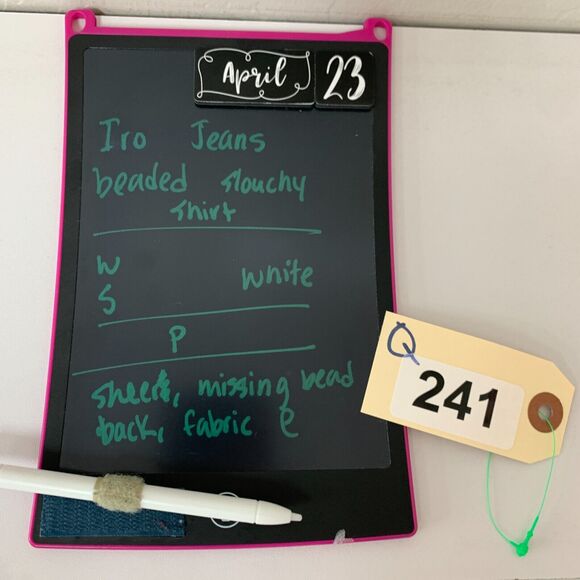 April 23
Iro Jeans
beaded slouchy
shirt
W
white
S
P
missing bead
back, fabric e
Q
241